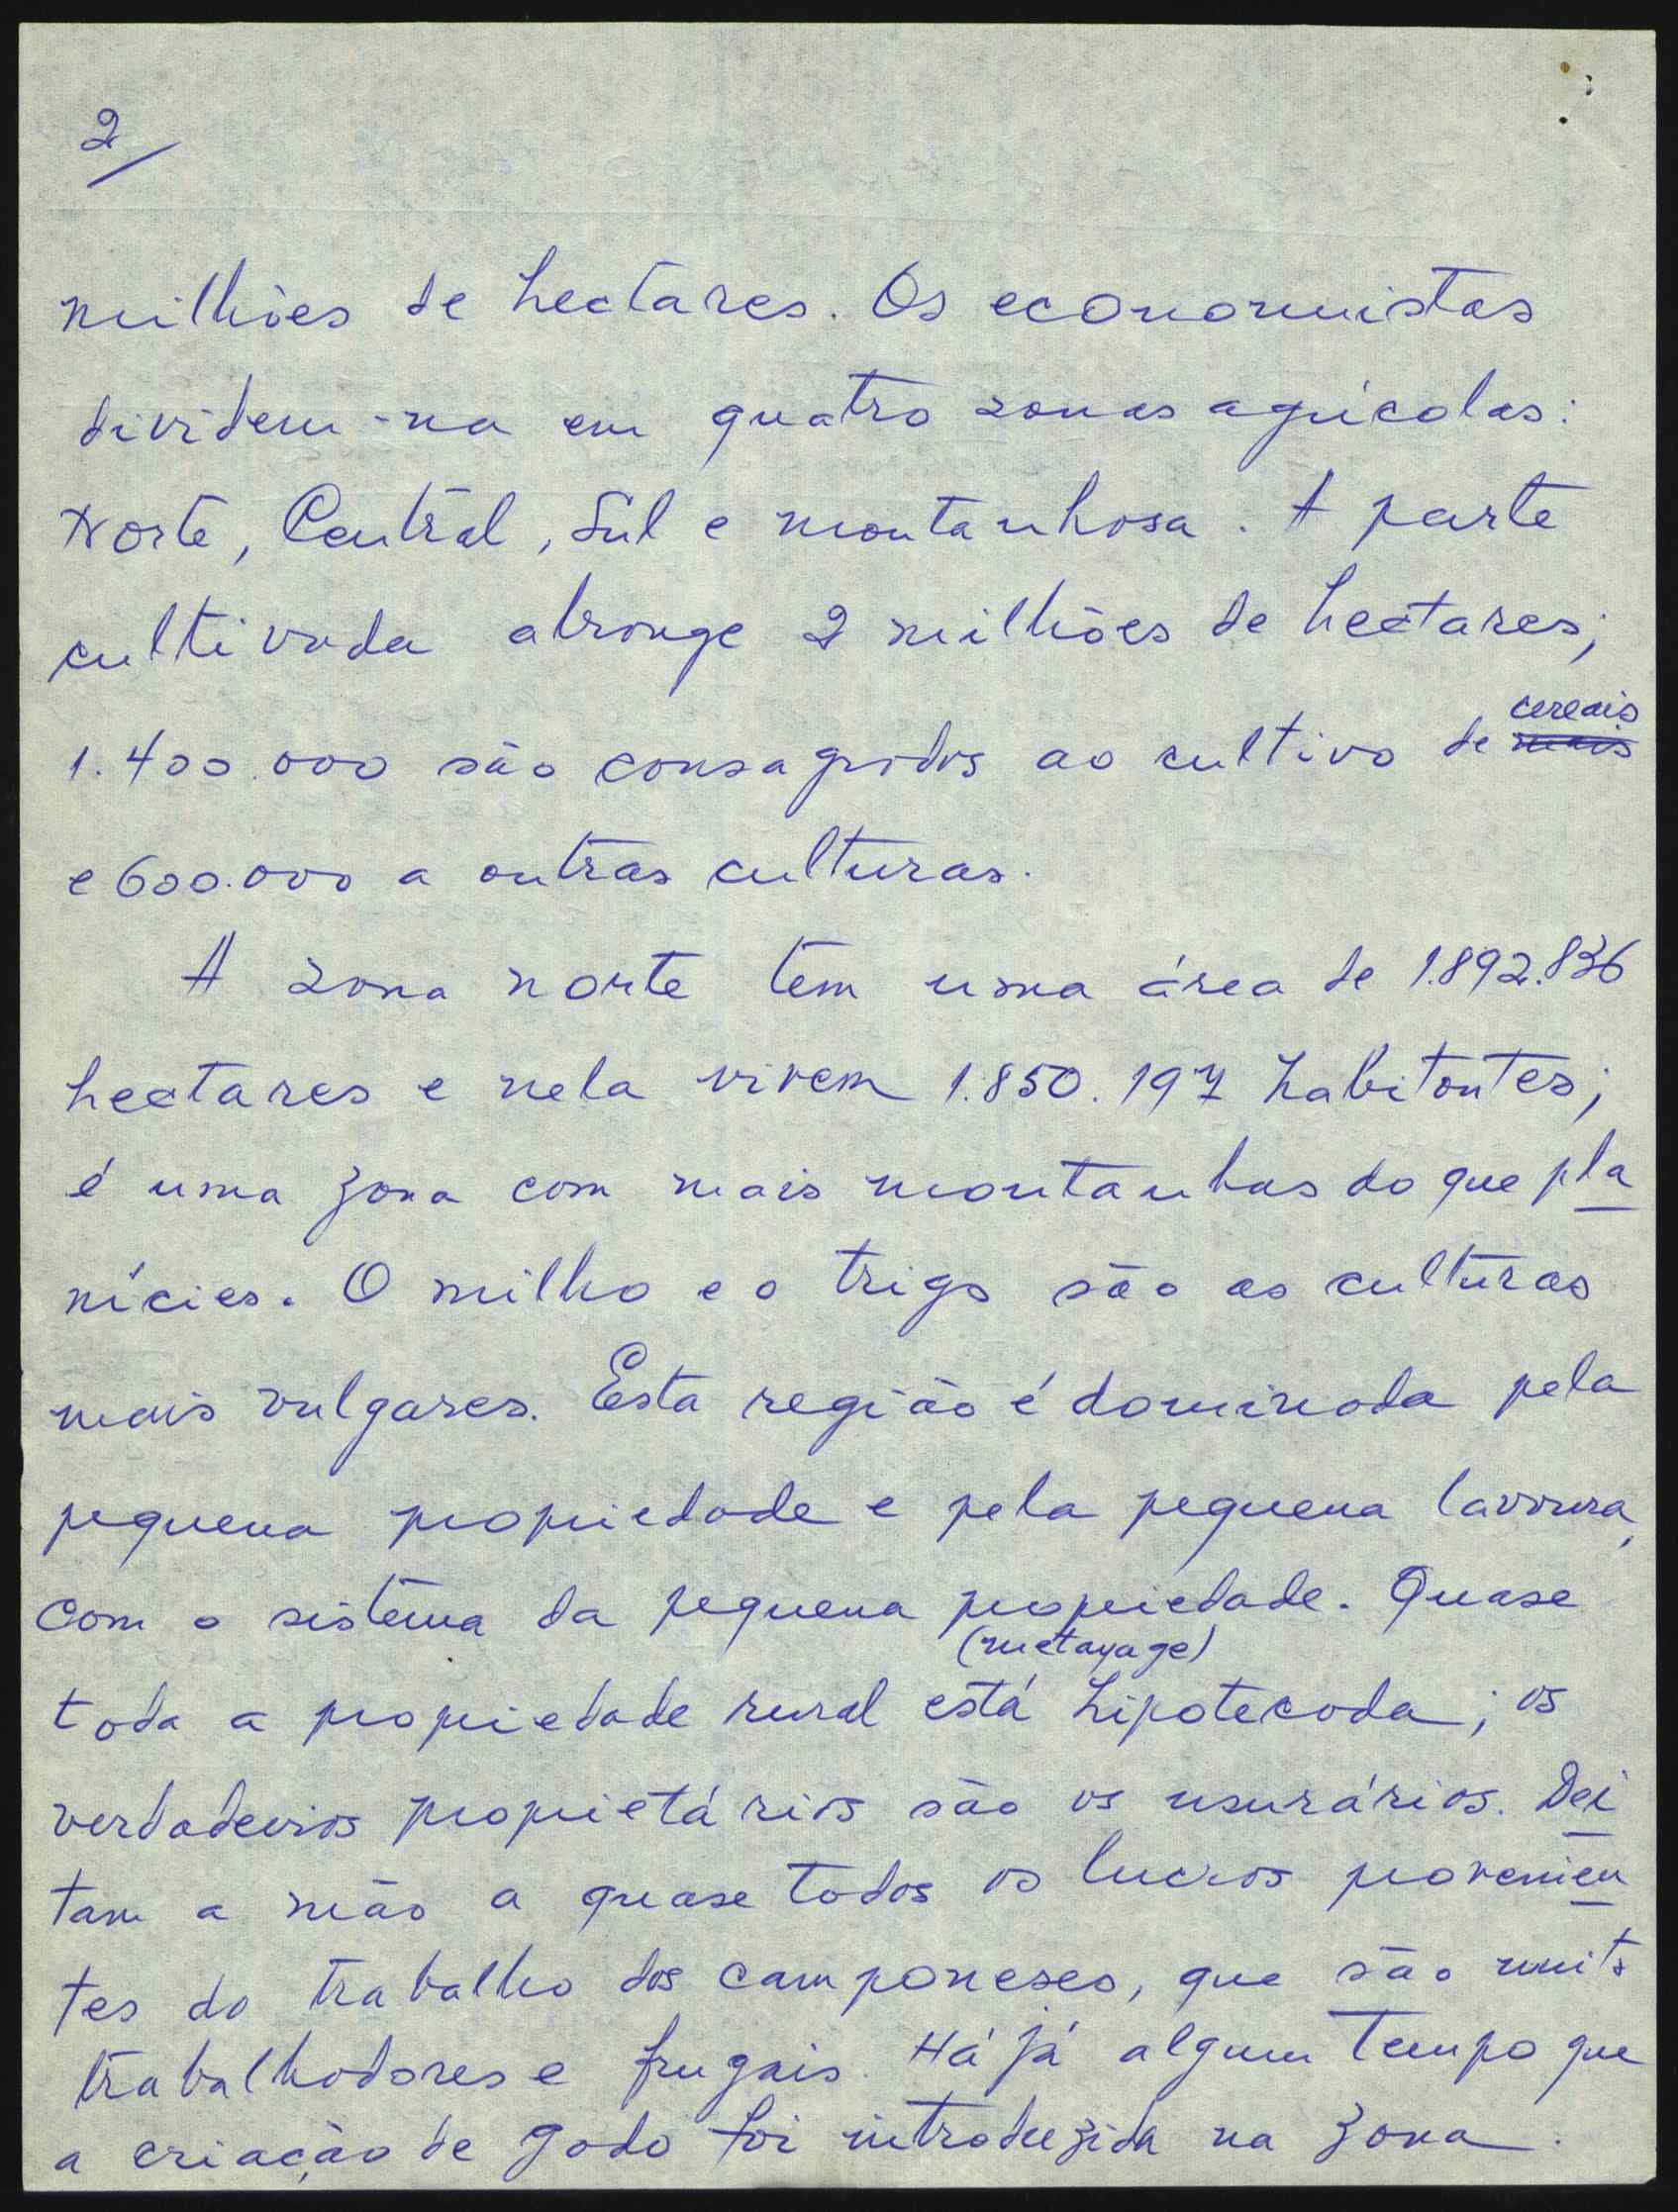 2/
milhões de hectares. Os economistas
dividem-na em quatro zonas agrícolas:
Norte, Central, Sul e montanhosa. A parte
cultivada abrange 2 milhões de hectares;
cereais
1.400.000 são consagrados ao cultivo de mais
e 600.000 a outras culturas.
A zona norte tem uma área de 1.892.836
hectares e nela vivem 1.850.197 habitantes;
é uma zona com mais montanhas do que pla
nícies. O milho e o trigo são as culturas
mais vulgares. Esta região é dominada pela
pequena propriedade e pela pequena lavoura,
com o sistema da pequena propriedade. Quase
(metayage)
toda a propriedade rural está hipotecada; os
verdadeiros proprietários são os usurários. Dei
tam a mão a quase todos os lucros provenien
tes do trabalho dos camponeses, que são muito
trabalhadores e frugais. Há já algum tempo que
a criação de gado foi introduzida na zona.